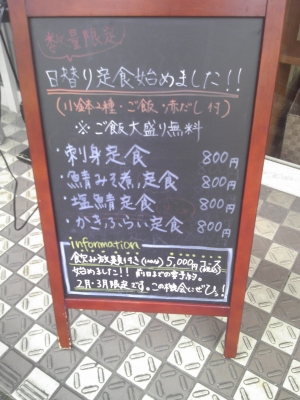 数量限定
日替り定食始めました!!
(小鉢2種・ご飯・赤だし付)
※ご飯大盛り無料
・刺身定食 800円
・鯖みそ煮定食 800円
・塩鯖定食 800円
・かきふらい定食 800円
information
飲み放題付き 5,000円コース
始めました!! 前日までの要予約。
2月・3月限定です。この機会にぜひ!